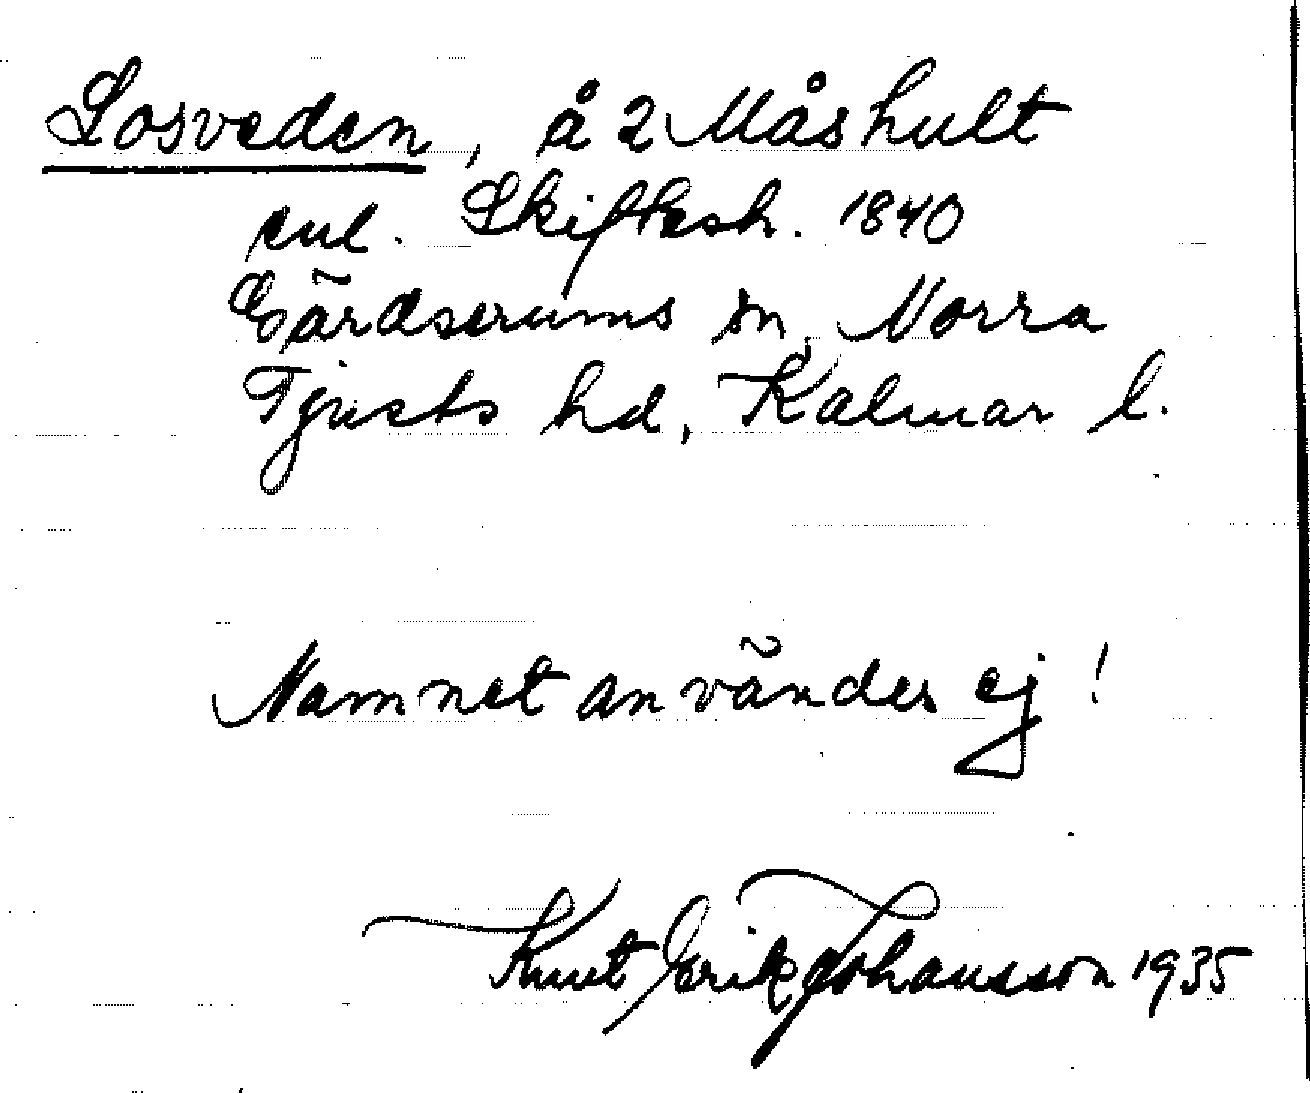 Losveden, å 2 Måshult
enl. Skiftesh. 1840
Gärdserums sn, Norra
Tjusts hd, Kalmar l.
Namnet användes ej!
Knut Erik Johansson 1935